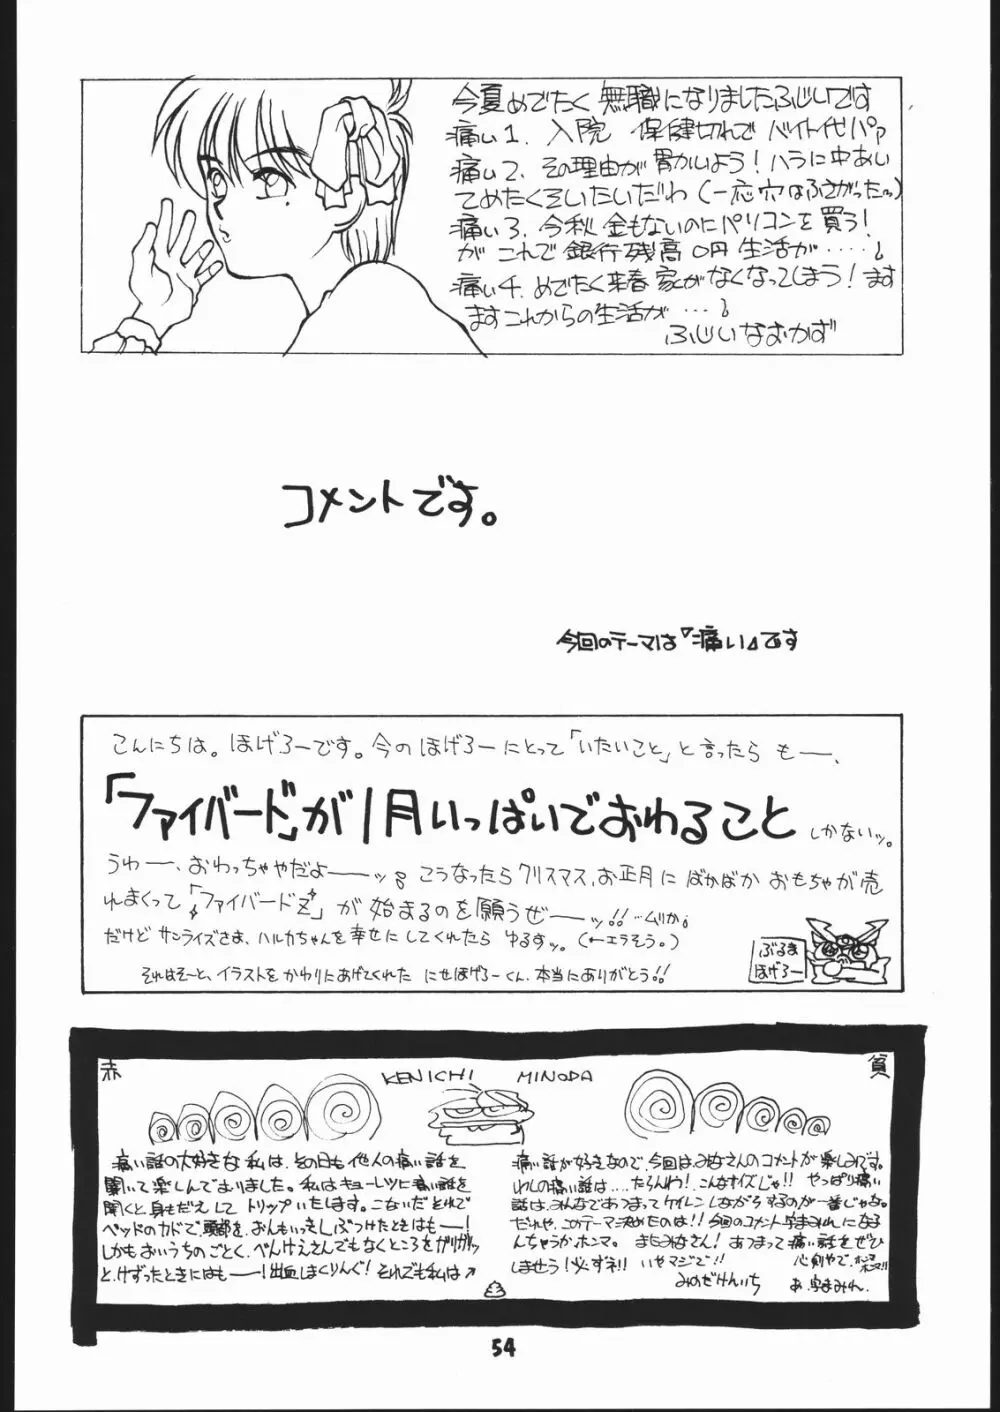 今夏めでたく 無職になりましたふじいです
痛い1. 入院 保健切れで バイト代パァ
痛い2. その理由が 胃かいよう! ハラに中あい
てめたくそいたいだわ (一応穴はふさがった〜)
痛い3. 今秋 金もないのにパソコンを買う!
が これで銀行残高0円 生活が・・・・・
痛い4. めでたく来春 家がなくなってしまう! ます
ますこれからの生活が・・・
ふじいなおかず
コメントです。
今回のテーマは『痛い』です
こんにちは。ほげろーです。今のほげろーにとって「いたいこと」と言ったら もー、
「ファイバード」が1月いっぱいでおわること しかないッ。
うわー、おわっちゃやだよーッ。こうなったらクリスマス、お正月に ばかばか おもちゃが売
れまくって「ファイバードZ」が 始まるのを願うぜーッ!! …ムリか。
だけど サンライズさま、ハルカちゃんを幸せにしてくれたら ゆるすッ。(←エラそう。)
それはそーと、イラストを かわりにあげてくれた にせほげろーくん、本当にありがとう!!
ぶるま
ほげろー
赤 KENICHI MINODA 貧
痛い話の大好きな私は、その日も他人の痛い話を
聞いて楽しんでまいりました。私はキョーレツに痛い話を
聞くと身もだえして トリップいたします。こないだとれで
ベッドのカドで、頭部を、おんもいっきし、ぶつけたときはもー!
しかもおいうちのごとく、べんけえさんでもなくところをガリガリッ
と、けずったときにはもー!出血しまくりんぐ! それでも私は↗
痛い話が好きなので、今回はみなさんのコメントが楽しみです。
わしの痛い話は....たらんわ! こんなサイズじゃ!! やっぱり痛い
話は、みんなであつまってケイレンしながらするのが一番じゃな。
だれや、このテーマ決めたのは!! 今回のコメント 字まみれになる
んちゃうか、ホンマ。 またみなさん! あつまって 痛い話をぜひ
しませう! 必ずネ!! いやマジで!! 心剣やで、ホンマホンマ!!
みのだけんいち あ、字まみれ、
54